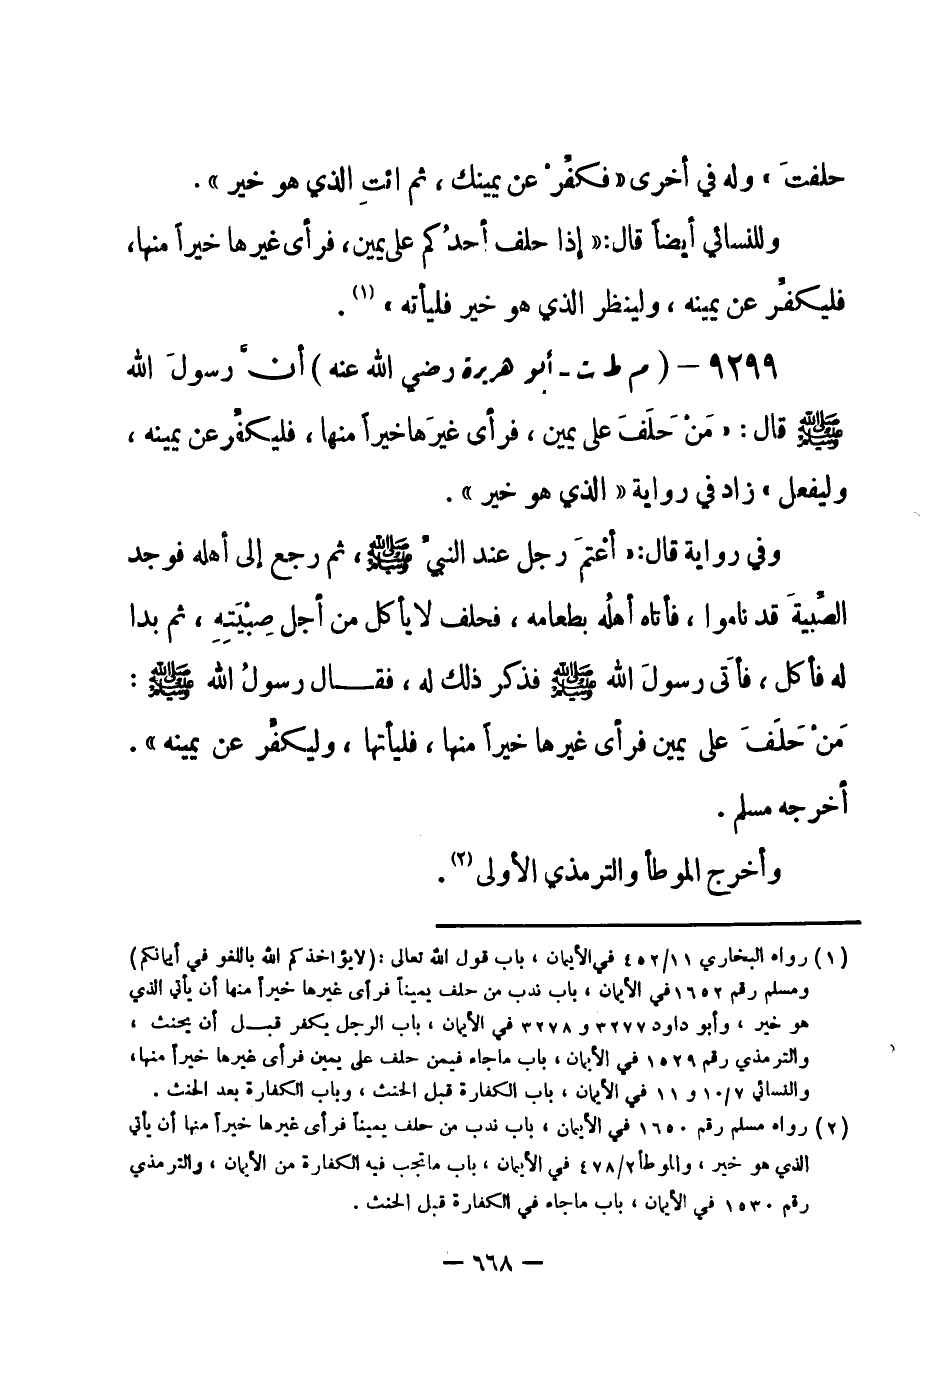 حلفتَ » وله في أخرى « فكفِّرْ عن يمينك ، ثم ائتِ الذي هو خير » .
وللنسائي أيضاً قال : « إذا حلف أحدُكم على يمين ، فرأى غيرها خيراً منها ،
فليكفِّر عن يمينه ، ولينظر الذي هو خير فليأته » (١) .
٩٢٩٩ – ( م ط ت - أبو هريرة رضي الله عنه ) أنَّ رسولَ الله
ﷺ قال : « مَنْ حَلَفَ على يمين ، فرأى غيرَها خيراً منها ، فليكفِّر عن يمينه ،
وليفعل » زاد في رواية « الذي هو خير » .
وفي رواية قال : « أعْتَمَ رجل عند النبيِّ ﷺ ، ثم رجع إلى أهله فوجد
الصِّبيةَ قد ناموا ، فأتاه أهلُه بطعامه ، فحلف لا يأكل من أجل صِبْيَتِهِ ، ثم بدا
له فأكل ، فأتى رسولَ الله ﷺ فذكر ذلك له ، فقـــال رسولُ الله ﷺ :
مَنْ حَلَفَ على يمين فرأى غيرها خيراً منها ، فليأتها ، وليكفِّر عن يمينه » .
أخرجه مسلم .
وأخرج الموطأ والترمذي الأولى (٢) .
(١) رواه البخاري ١١/٤٥٢ في الأيمان ، باب قول الله تعالى : (لايؤاخذكم الله باللغو في أيمانكم)
ومسلم رقم ١٦٥٢ في الأيمان ، باب ندب من حلف يميناً فرأى غيرها خيراً منها أن يأتي الذي
هو خير ، وأبو داود ٣٢٧٧ و ٣٢٧٨ في الأيمان ، باب الرجل يكفر قبـل أن يحنث ،
والترمذي رقم ١٥٢٩ في الأيمان ، باب ماجاء فيمن حلف على يمين فرأى غيرها خيراً منها ،
والنسائي ٧/١٠ و ١١ في الأيمان ، باب الكفارة قبل الحنث ، وباب الكفارة بعد الحنث .
(٢) رواه مسلم رقم ١٦٥٠ في الأيمان ، باب ندب من حلف يميناً فرأى غيرها خيراً منها أن يأتي
الذي هو خير ، والموطأ ٢/٤٧٨ في الأيمان ، باب ماتجب فيه الكفارة من الأيمان ، والترمذي
رقم ١٥٣٠ في الأيمان ، باب ماجاء في الكفارة قبل الحنث .
— ٦٦٨ —